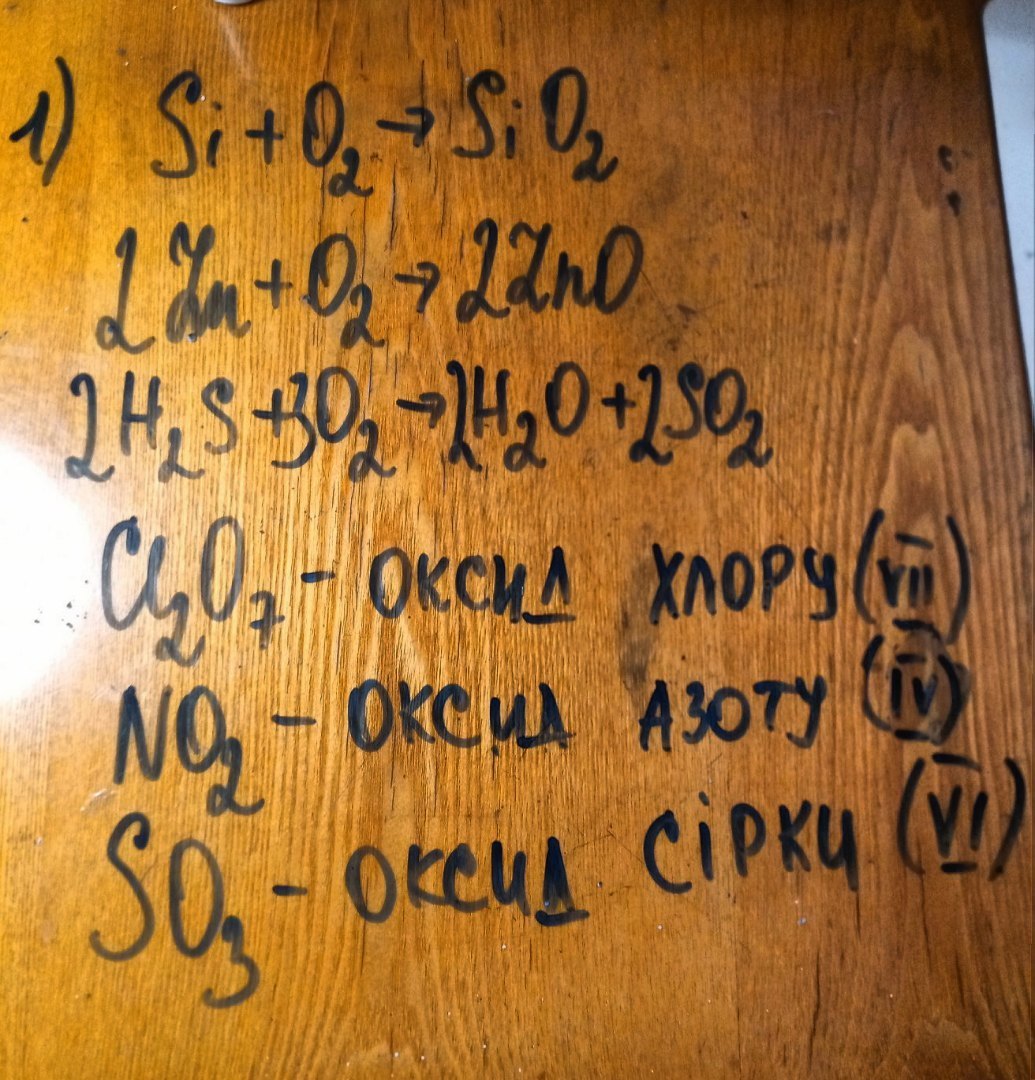 1) Si + O₂ → SiO₂
2Zn + O₂ → 2ZnO
2H₂S + 3O₂ → 2H₂O + 2SO₂
Cl₂O₇ - оксид хлору (VII)
NO₂ - оксид азоту (IV)
SO₃ - оксид сірки (VI)